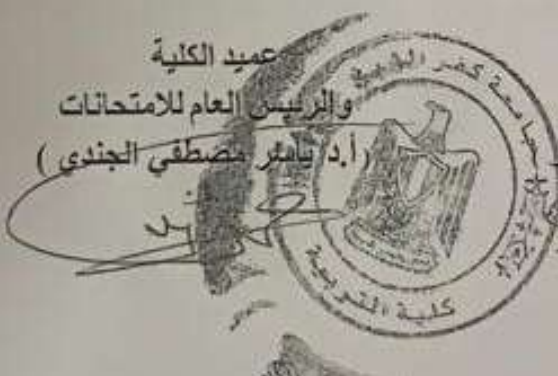 عميد الكلية
والرئيس العام للامتحانات
(أ.د/ ياسر مصطفي الجندي )
جامعة كفر الشيخ
كلية التربية